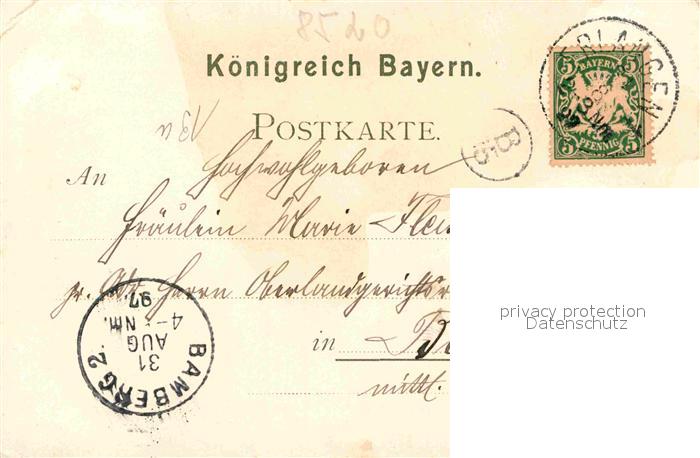 8520
Königreich Bayern.
ERLANGEN
5 BAYERN 5
5 PFENNIG 5
POSTKARTE.
B.5
An Hochwohlgeboren
Fräulein Marie
Herrn Oberlandgerichtsr
in
mittl.
BAMBERG 2.
31
AUG
4- Nm.
97
privacy protection
Datenschutz